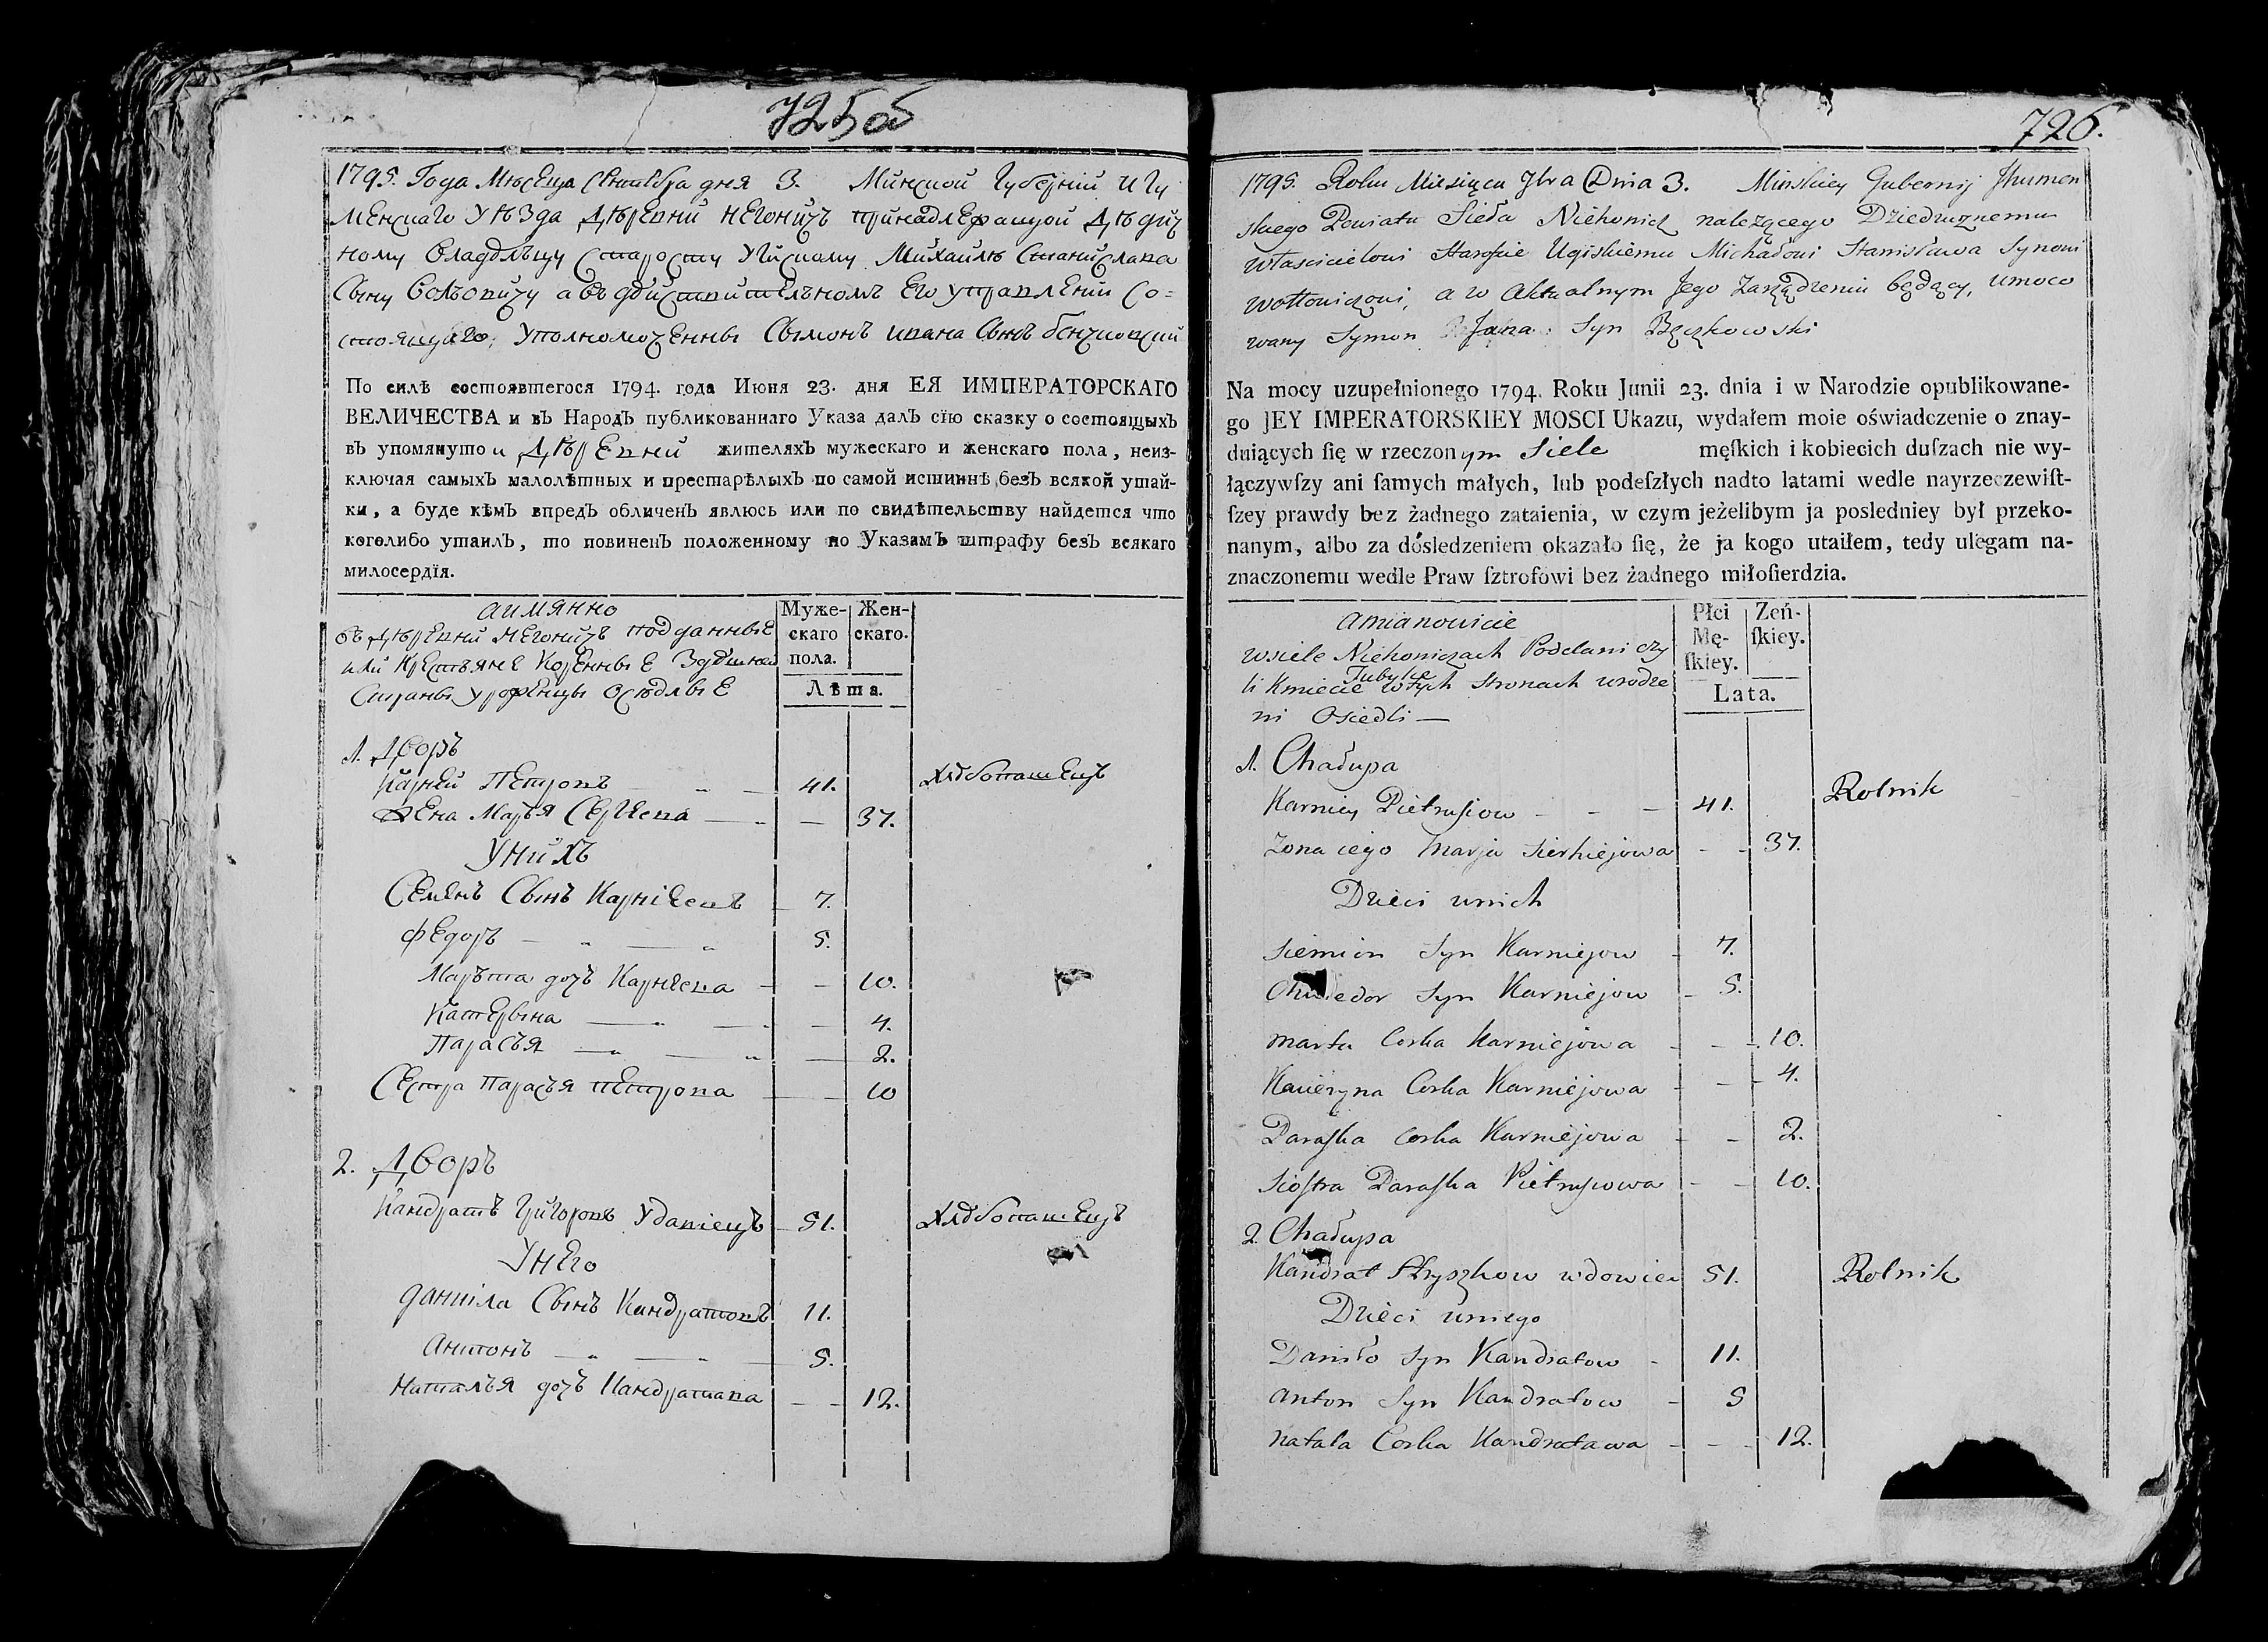 725об
1795. Года Мѣсеца Сентебра дня 3. Минской Губерніи Игу
менскаго Уѣзда Дѣревни Негоничъ принадлежащой Дѣдич
ному Владѣльцу Старосту Угискому Михайлѣ Станислава
Сыну Воловичу а въ дѣйствительномъ Его управленіи Со=
стоящаго, Уполномоченны Сымонъ ивана Сынъ
По силѣ состоявшегося 1794. года Июня 23. дня ЕЯ ИМПЕРАТОРСКАГО
ВЕЛИЧЕСТВА и въ Народъ публикованнаго Указа далъ сїю сказку о состоящыхъ
въ упомянуто и Дѣревни жителяхъ мужескаго и женскаго пола, неиз-
ключая самыхъ малолѣтныхъ и престарѣлыхъ по самой истиннѣ безъ всякой утай-
ки, а буде кѣмъ впредъ обличенъ явлюсь или по свидѣтельству найдется что
коголибо утаилъ, то повиненъ положенному по Указамъ штрафу безъ всякаго
милосердїя.
аимянно
въ Дѣревни Негоничъ подданные
или Крестьяне Коренные Здѣшнеи
Стараны Уроженцы Осѣдлые
Муже-
скаго
пола.
Жен-
скаго.
Лѣта.
1. Дворъ
Карней Петровъ — „ — 41. Хлѣбопашецъ
Жена Марья Сергеева — „ — 37.
Унихъ
Семенъ Сынъ Карнѣевъ 7.
Федоръ — „ — „ 5.
Маръта дочъ Карнеева — — 10.
Катерына — „ — — 4.
Парасъя — „ — „ — 2.
Сестра Парасъя петрова — — 10
2. Дворъ
Кандратъ Григоровъ Удавіецъ — 51. Хлѣбопашецъ
Унего
Даниила Сынъ Кандратовъ 11.
Антонъ — „ — „ — 5.
Наталья дочъ Кандратава — — 12.
726.
1795. Roku Miesiąca 7bra Dnia 3. Minskiey Gubernij Jhumen
skiego Powiatu Sieła Niehonicz należącego Dziedzicznemu
własicielowi Staroście Ugiskiemu Michałowi Stanisława Synowi
Wołłowiczowi, a w Aktualnym Jego Zarządzeniu będący, umoco
wany Symon Jana Syn Bęczkowski
Na mocy uzupełnionego 1794. Roku Junii 23. dnia i w Narodzie opublikowane-
go JEY IMPERATORSKIEY MOSCI Ukazu, wydałem moie oświadczenie o znay-
duiących ſię w rzeczonym Siele męſkich i kobiecich duſzach nie wy-
łączywſzy ani ſamych małych, lub podeſzłych nadto latami wedle nayrzeczewiſt-
ſzey prawdy bez żadnego zataienia, w czym jeżelibym ja posledniey był przeko-
nanym, albo za dósledzeniem okazało ſię, że ja kogo utaiłem, tedy ulegam na-
znaczonemu wedle Praw ſztrofowi bez żadnego miłoſierdzia.
amianowicie
wsiele Niehoniczach Poddani czy
li Kmiecie Tubylce wtych Stronach urodze
ni Osiedli —
Płci
Mę-
ſkiey.
Zeń-
ſkiey.
Lata.
1. Chałupa
Karniey Pietrusiow - - — 41. Rolnik
Zona iego Marja Sierhiejowa - - 37.
Dzieci unich
Siemion Syn Karniejow - 7.
Chwiedor Syn Karniejow - 5.
Marta Corka Karniejowa - - - 10.
Kacieryna Corka Karniejowa - - - 4.
Paraſka Corka Karniejowa - - 2.
Sioſtra Paraſka Pietrusiowa - - 10.
2. Chałupa
Kandrat Hryszkow wdowiec 51. Rolnik
Dzieci uniego
Daniło Syn Kandratow - 11.
Anton Syn Kandratow - 5
Natala Corka Kandratawa - - - 12.